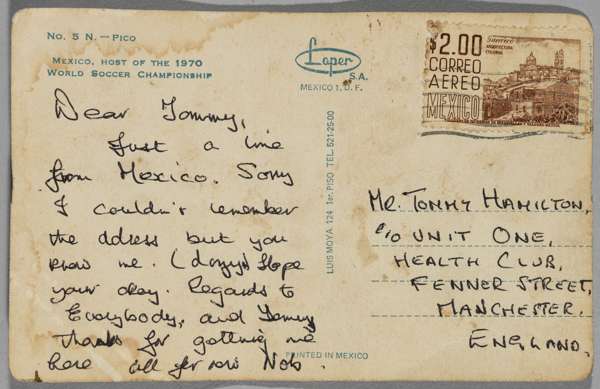 No. 5 N. — Pico
Mexico, host of the 1970
World Soccer Championship
Loper
S.A.
MEXICO 1, D. F.
$2.00
CORREO
AEREO
MEXICO
ARQUITECTURA
COLONIAL
LUIS MOYA 124 1er. PISO TEL. 521-25-00
Dear Tommy,
Just a line
from Mexico. Sorry
I couldn't remember
the address but you
know me. (dozy) Hope
your okay. Regards to
Everybody, and Tommy
Thanks for getting me
here all for now Nob.
PRINTED IN MEXICO
MR. TOMMY HAMILTON,
c/o UNIT ONE,
HEALTH CLUB,
FENNER STREET,
MANCHESTER.
ENGLAND.